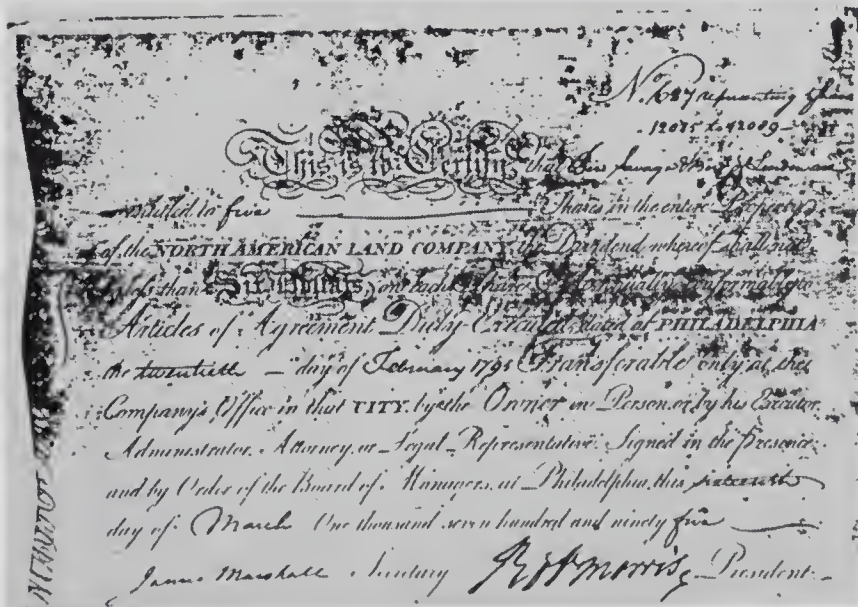 representing
12085 to 12089
This is to Certify that
entitled to five Shares in the entire Property
of the NORTH AMERICAN LAND COMPANY, the Dividend whereof shall not
be less than Six Dollars on each Share annually conformable to
Articles of Agreement Duly Executed dated at PHILADELPHIA
the twentieth day of February 1795 Transferable only at the
Company's Office in that CITY, by the Owner in Person, or by his Executor
Administrator, Attorney, or Legal Representative. Signed in the Presence
and by Order of the Board of Managers, at Philadelphia, this sixteenth
day of March One thousand seven hundred and ninety five
James Marshall Secretary Robt Morris President